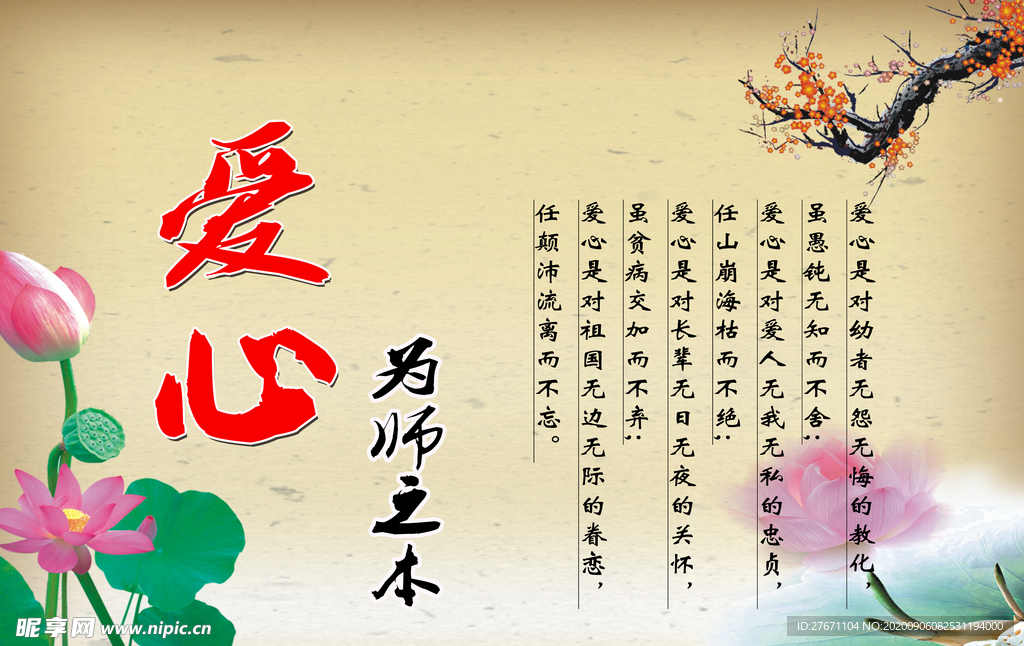 爱心
为师之本
爱心是对幼者无怨无悔的教化，
虽愚钝无知而不舍；
爱心是对爱人无我无私的忠贞，
任山崩海枯而不绝；
爱心是对长辈无日无夜的关怀，
虽贫病交加而不弃；
爱心是对祖国无边无际的眷恋，
任颠沛流离而不忘。
昵享网 www.nipic.cn
ID:27671104 NO:20200906082531194000